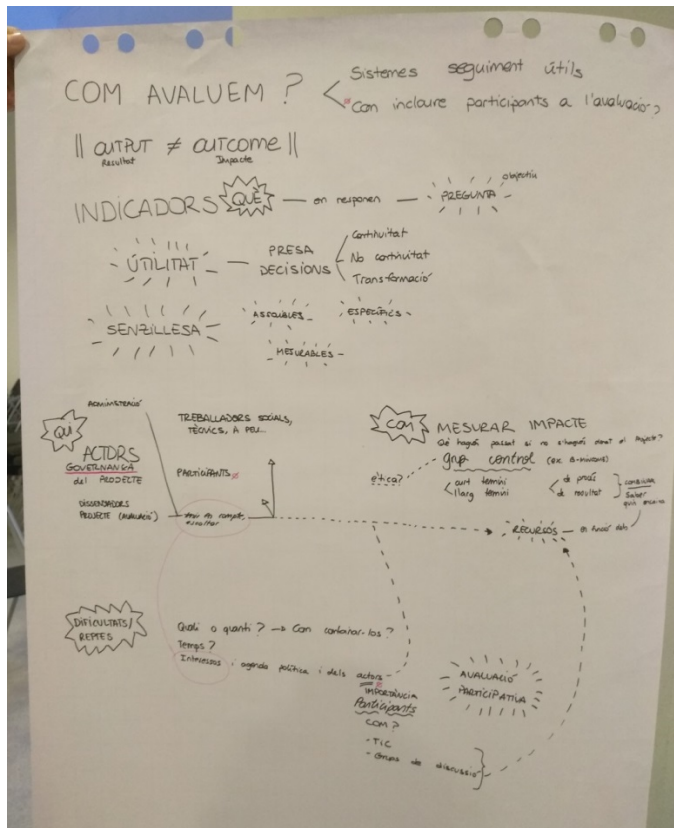 COM AVALUEM?
Sistemes seguiment útils
Com incloure participants a l'avaluació?
|| OUTPUT ≠ OUTCOME ||
Resultat
Impacte
INDICADORS QUÈ — en responen — PREGUNTA
objectiu
ÚTILITAT — PRESA DECISIONS
Continuitat
No continuitat
Transformació
SENZILLESA
ASSOLIBLES
ESPECÍFICS
MESURABLES
ADMINISTRACIÓ
QUI
ACTORS
GOVERNANÇA
del PROJECTE
DISSENYADORS
PROJECTE (AVALUACIÓ)
TREBALLADORS SOCIALS,
TÈCNICS, A PEU...
PARTICIPANTS
escoltar
COM
MESURAR IMPACTE
Què hagués passat si no s'hagués donat el projecte?
grup control
ètica?
curt termini
llarg termini
de procés
de resultat
RECURSOS — en funció dels
DIFICULTATS/
REPTES
Quali o quanti? → Com
Temps?
Interessos i agenda política i dels actors
IMPORTÀNCIA
Participants
COM?
- TIC
- Grups de discussió
AVALUACIÓ
PARTICIPATIVA